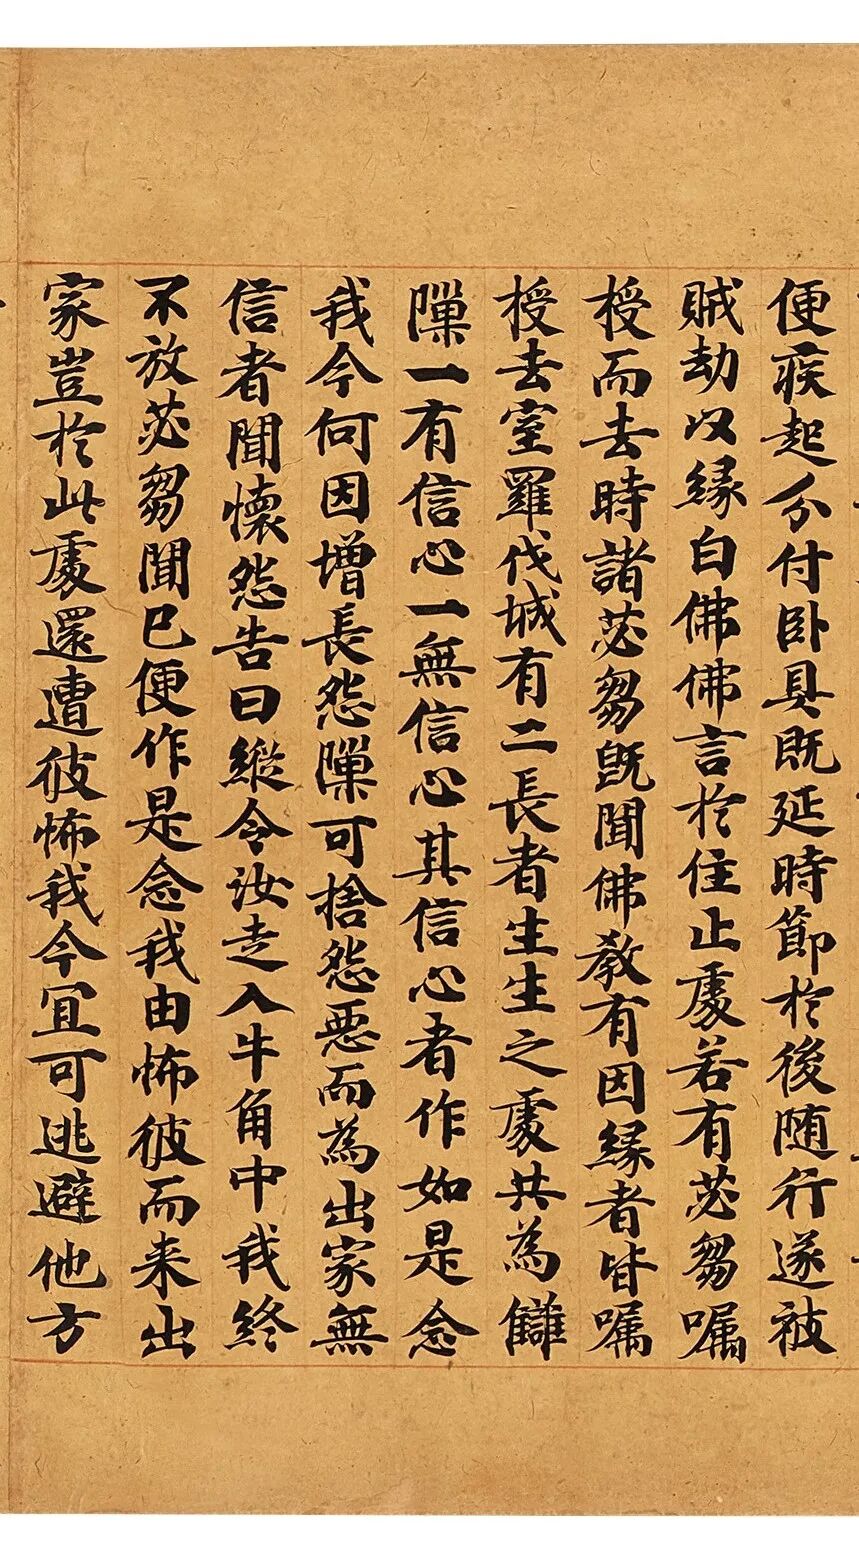 便疾起分付卧具既延時節於後随行遂被
賊劫以緣白佛佛言於住止處若有苾芻囑
授而去時諸苾芻既聞佛教有因緣者皆嘱
授去室羅伐城有二長者生生之處共為讎
隟一有信心一無信心其信心者作如是念
我今何因增長怨隟可捨怨惡而為出家無
信者聞懷怨告曰縱令汝走入牛角中我終
不放苾芻聞已便作是念我由怖彼而来出
家豈於此處還遭彼怖我今宜可逃避他方